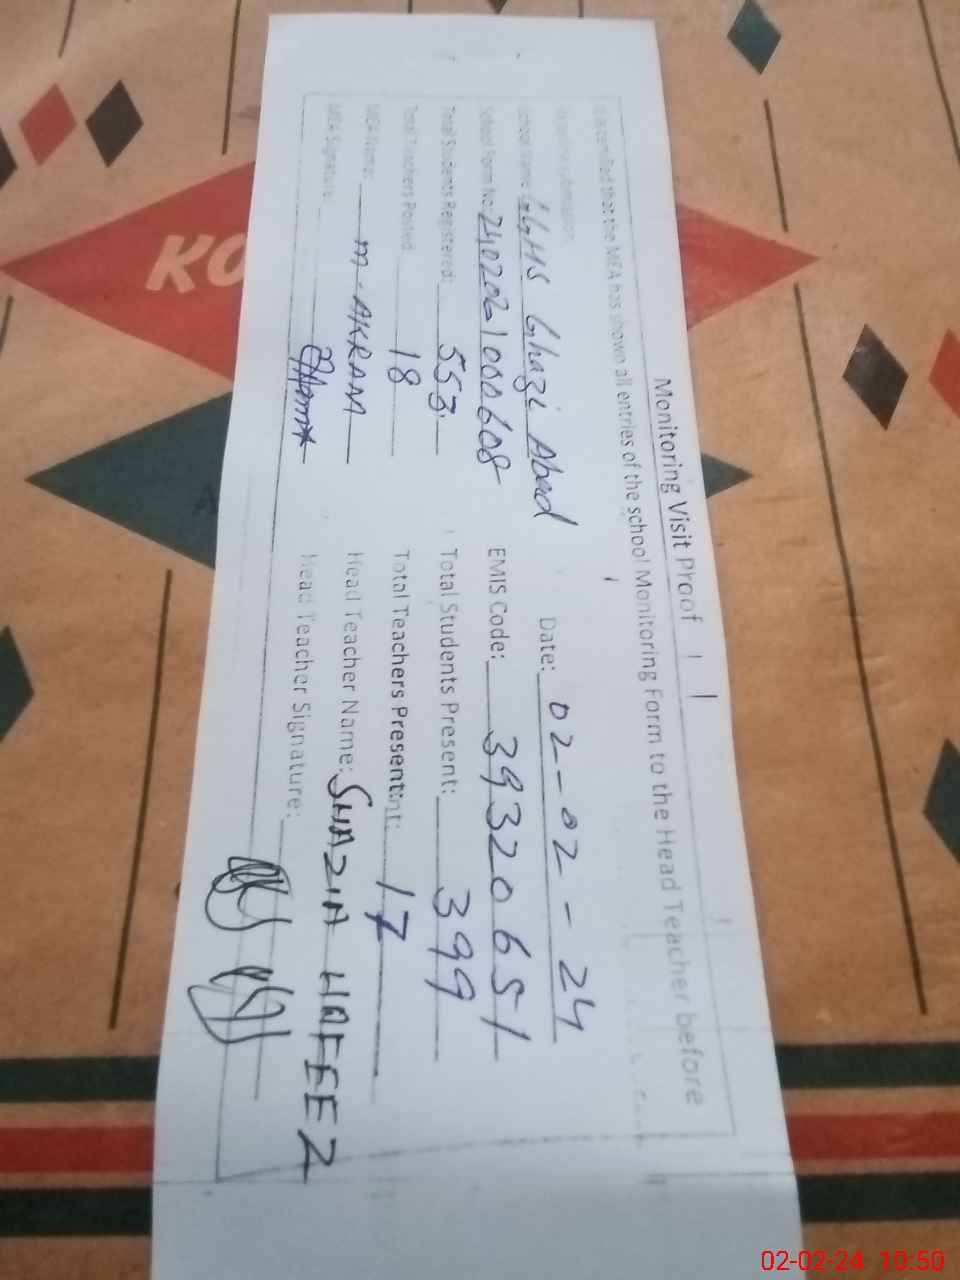 Monitoring Visit Proof
It is certified that the MEA has shown all entries of the school Monitoring Form to the Head Teacher before
its online submission.
School Name: GGHS Ghazi Abad Date: 02-02-24
School Form No: 2402021000608 EMIS Code: 39320651
Total Students Registered: 553 Total Students Present: 399
Total Teachers Posted: 18 Total Teachers Present:nt: 17
MEA Name: M-AKRAM Head Teacher Name: SHAZIA HAFEEZ
MEA Signature: Head Teacher Signature:
KO
02-02-24 10:50